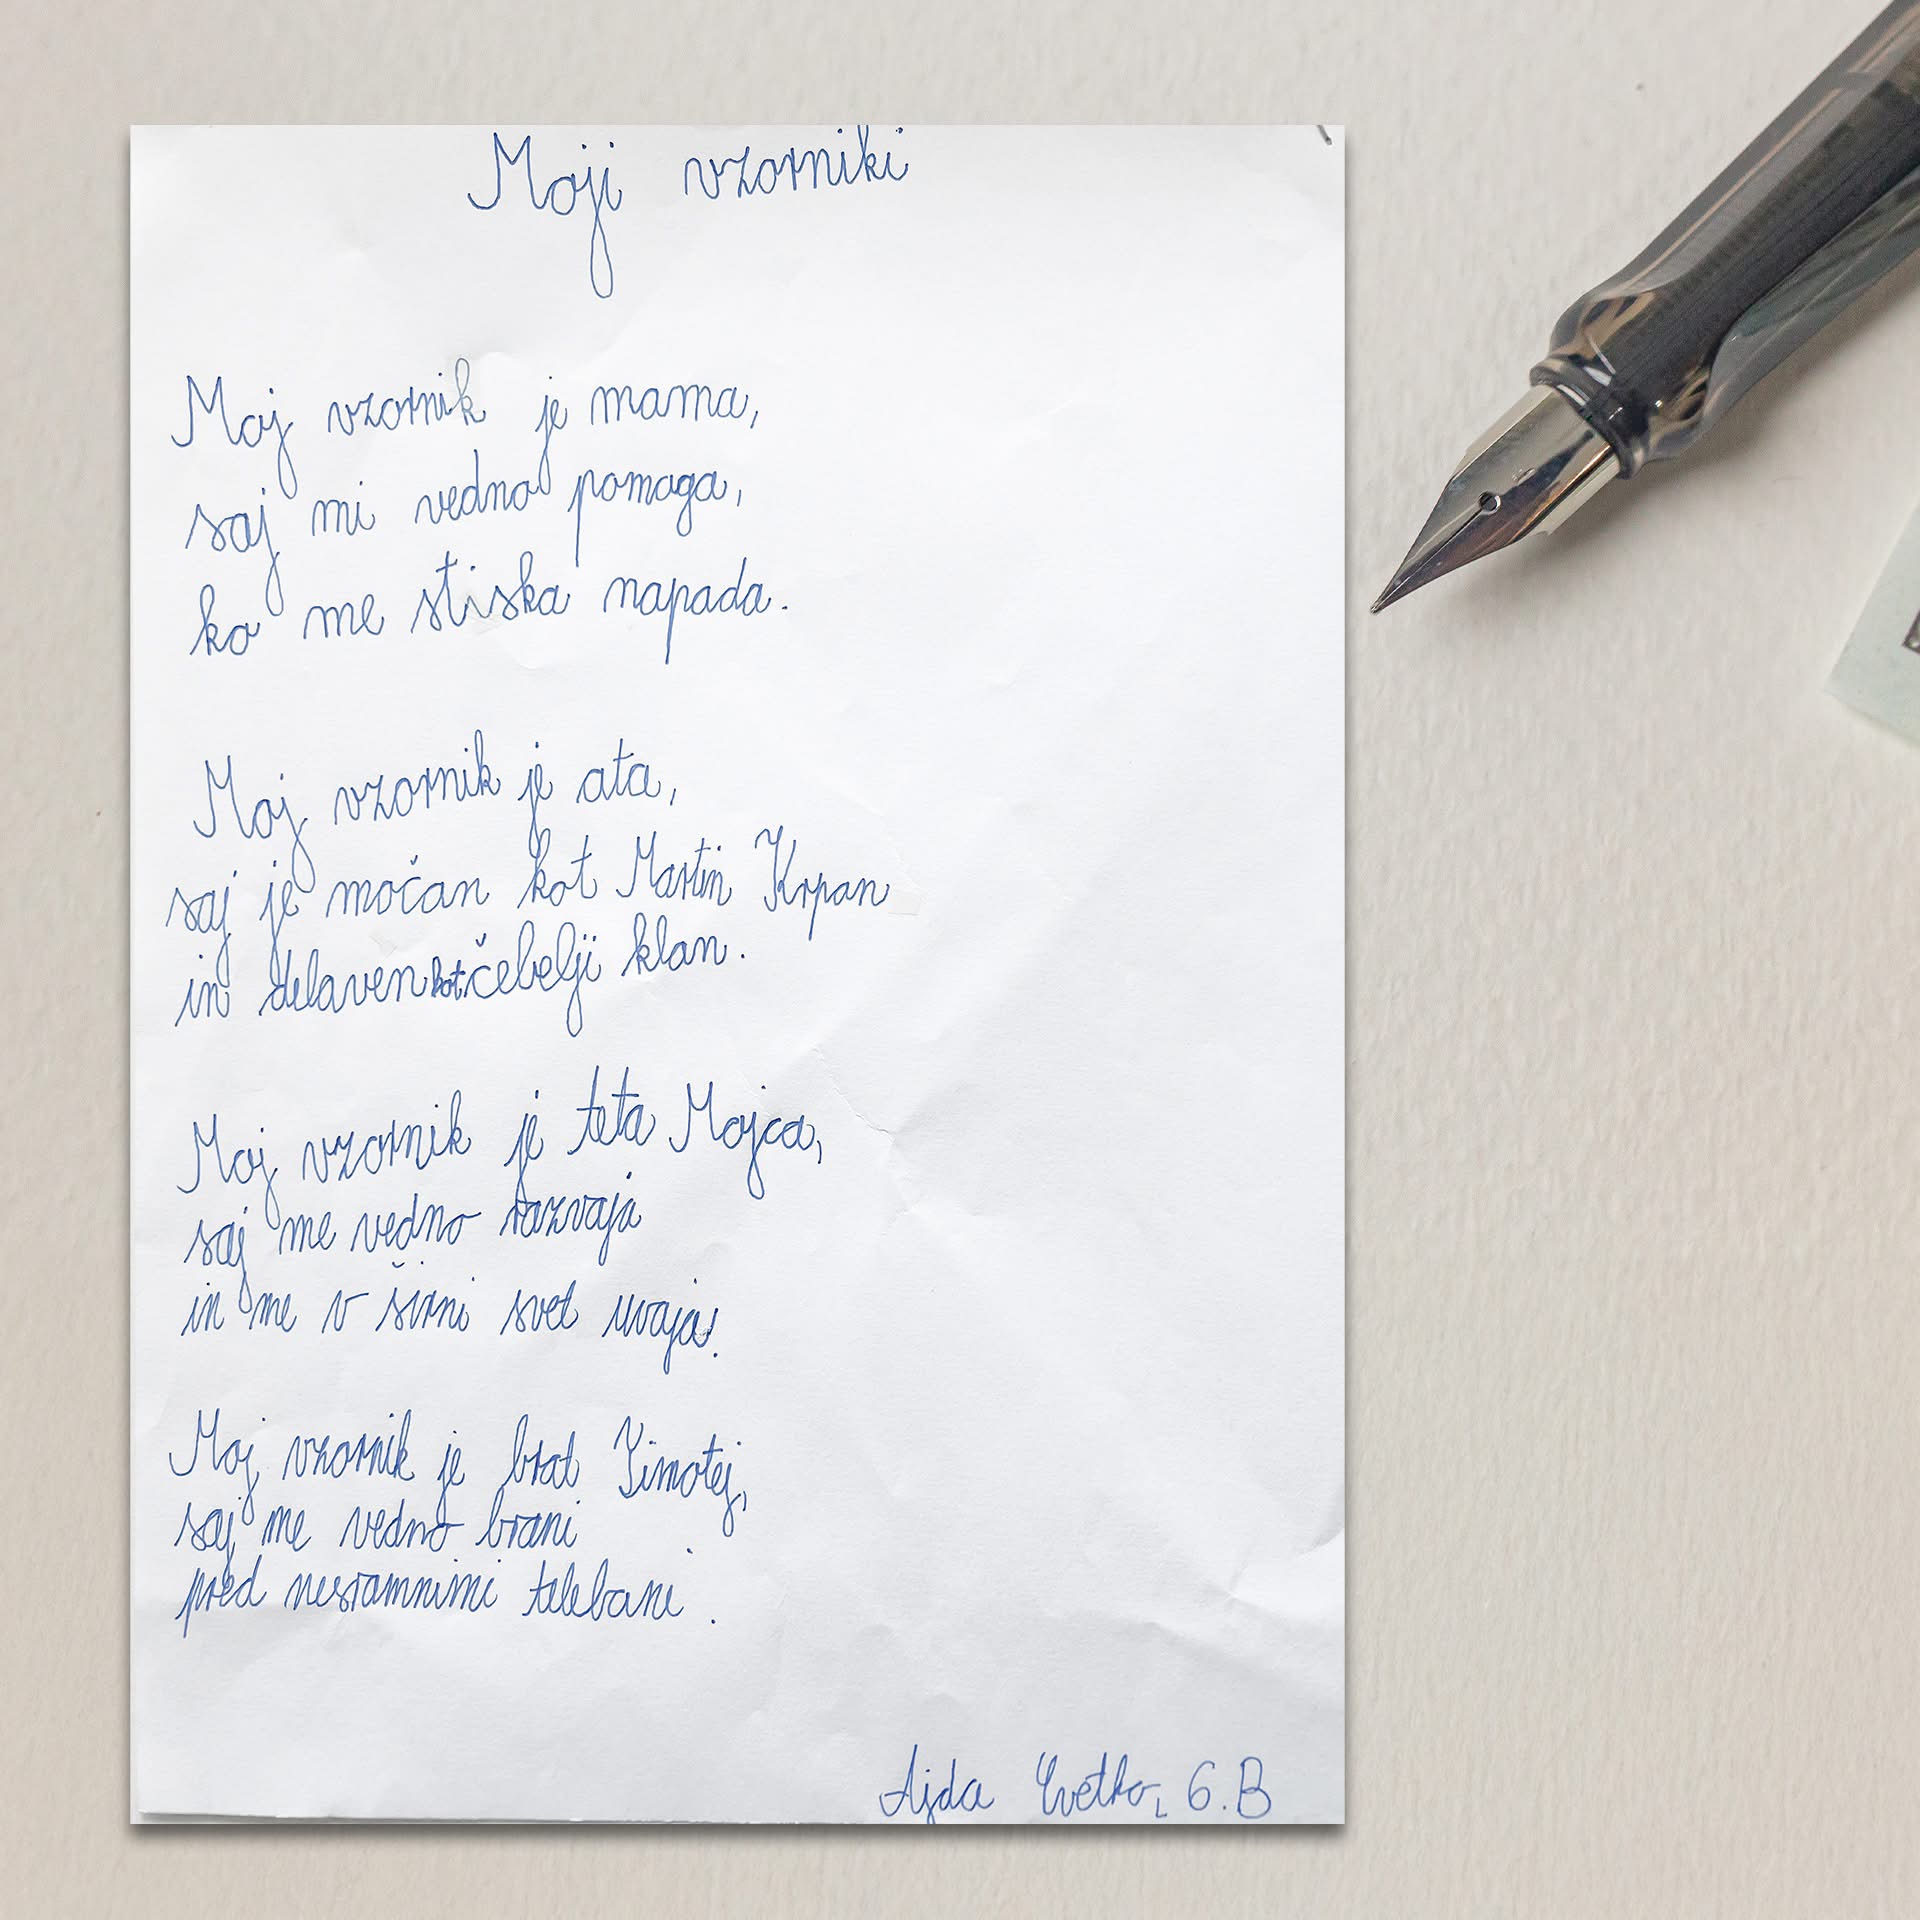 Moji vzorniki
Moj vzornik je mama,
saj mi vedno pomaga,
ko me stiska napada.
Moj vzornik je ata,
saj je močan kot Martin Krpan
in delaven kot čebelji klan.
Moj vzornik je teta Mojca,
saj me vedno razvaja
in me v širni svet uvaja.
Moj vzornik je brat Timotej,
saj me vedno brani
pred nesramnimi telebani.
Ajda Cvetko, 6. B